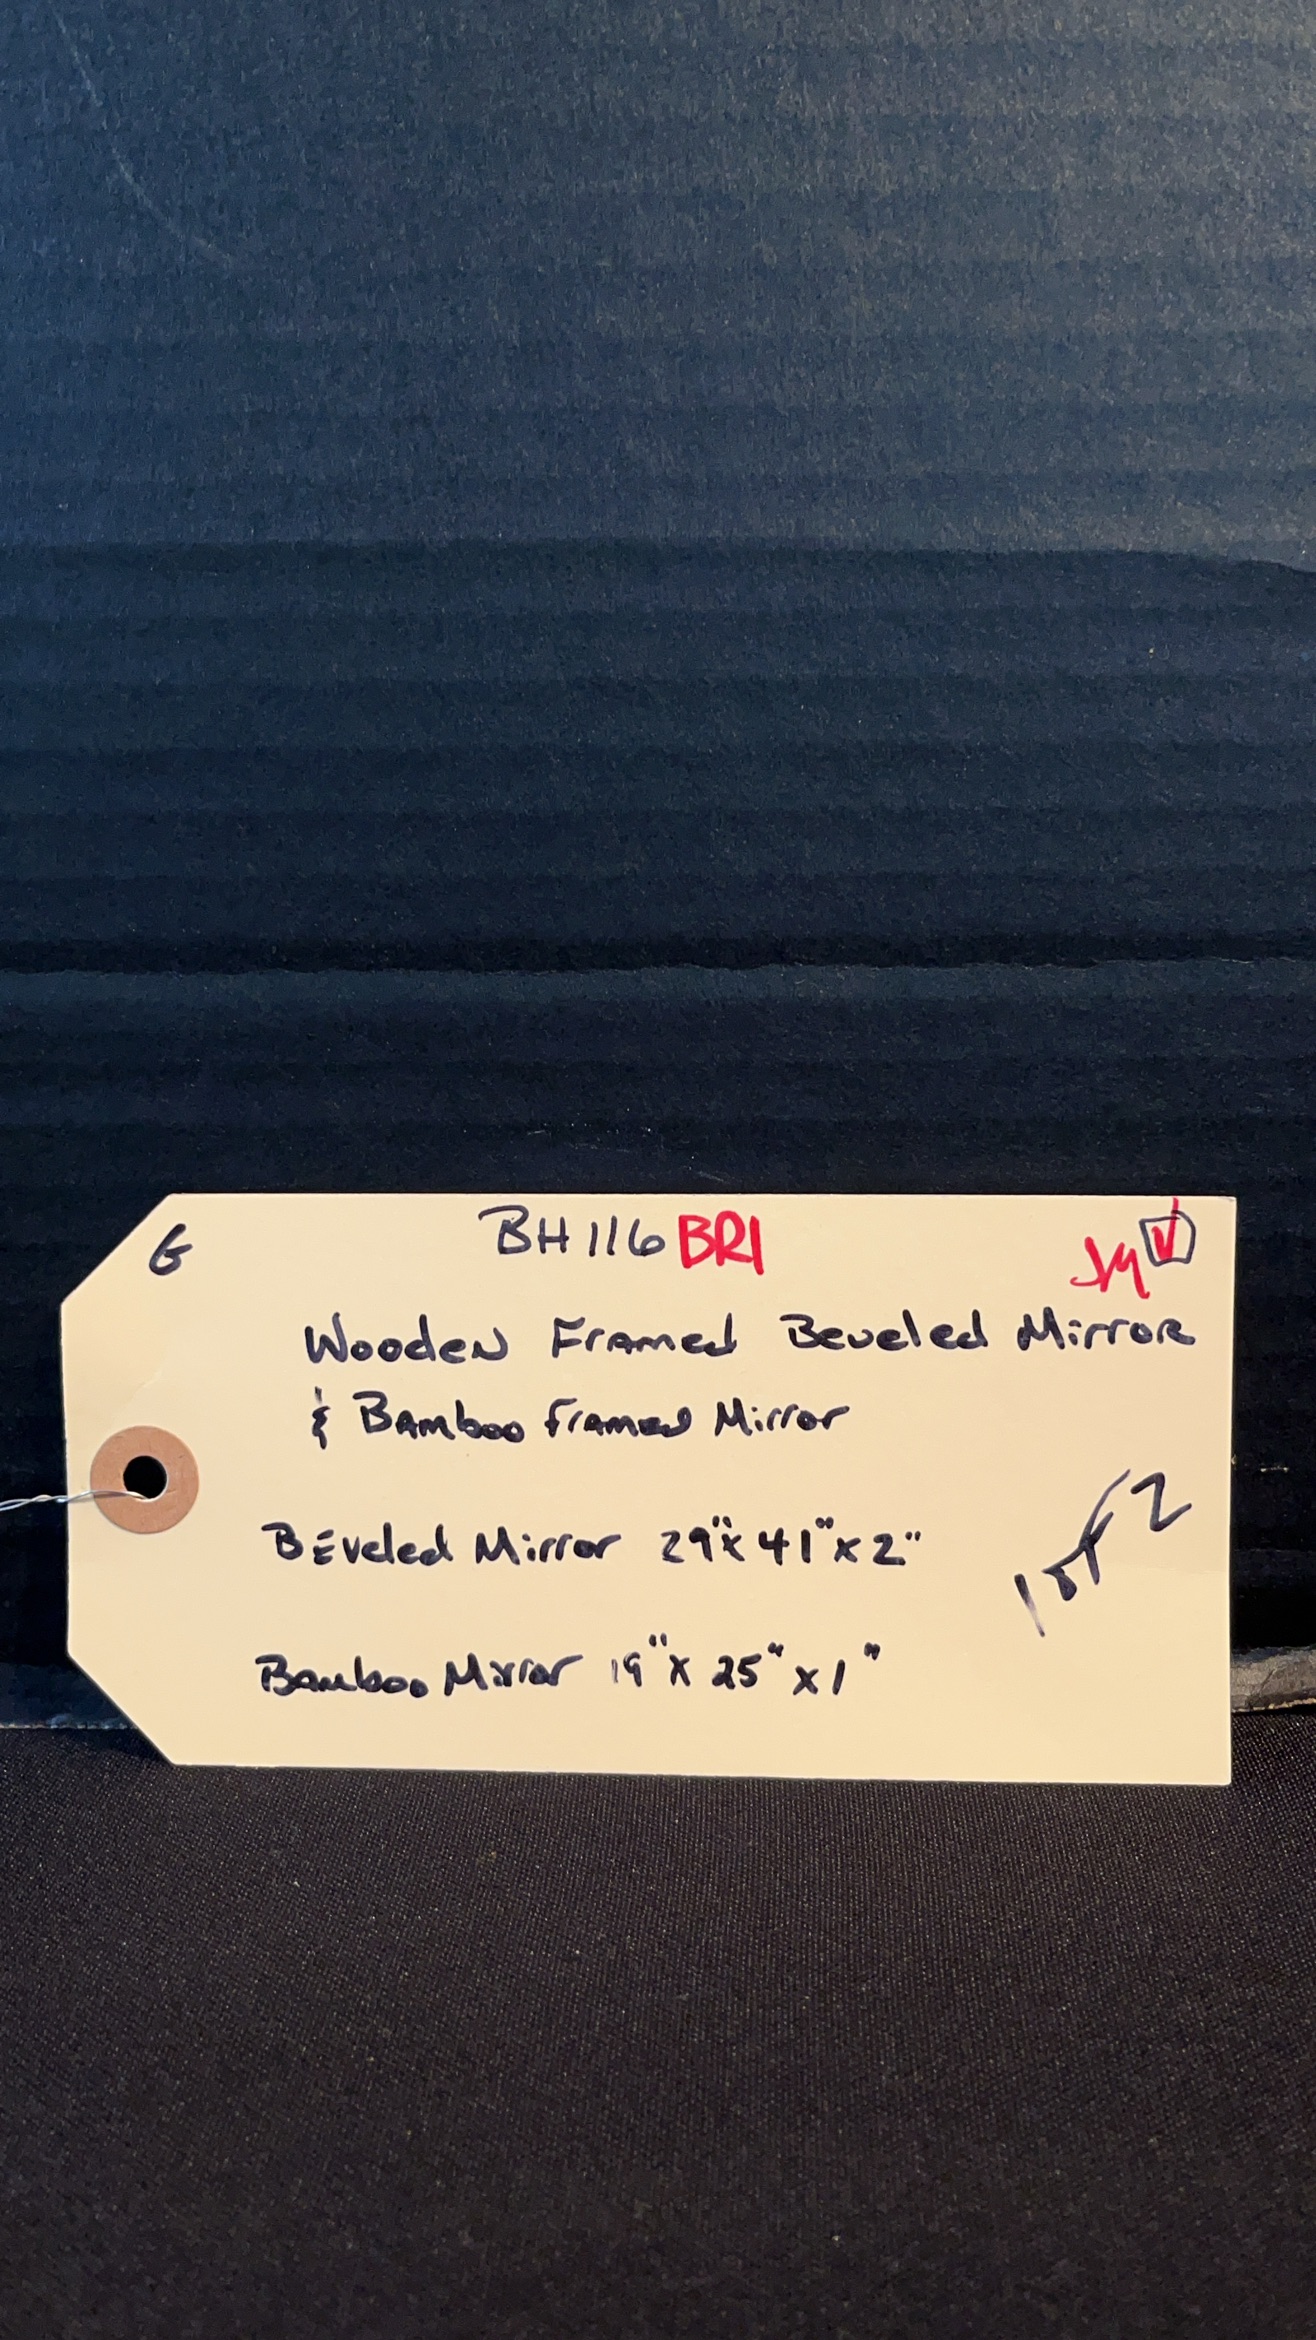 G BH116 BR1
Wooden Framed Beveled Mirror
& Bamboo Framed Mirror
Beveled Mirror 29"x 41"x 2"
1 of 2
Bamboo Mirror 19"x 25"x 1"